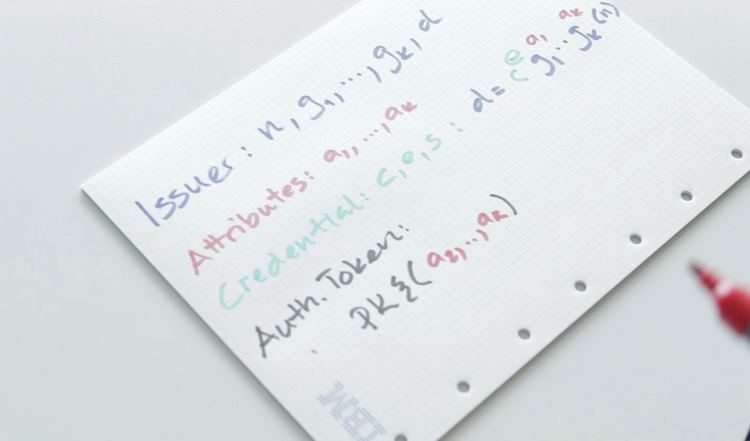 Issuer: n, g₁, ..., gₖ, d
Attributes: a₁, ..., aₖ
Credential: c, e, s : d = cᵉ g₁ᵃ¹ ... gₖᵃᵏ (n)
Auth. Token:
PK{(a₂, ..., aₖ)
IBM